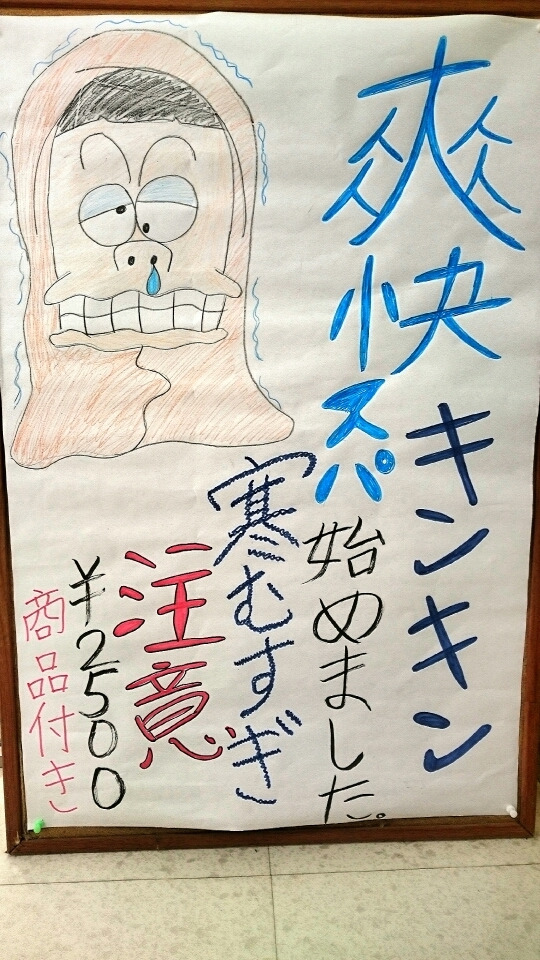 爽快キンキン
スパ始めました。
寒むすぎ
注意
¥2500
商品付き